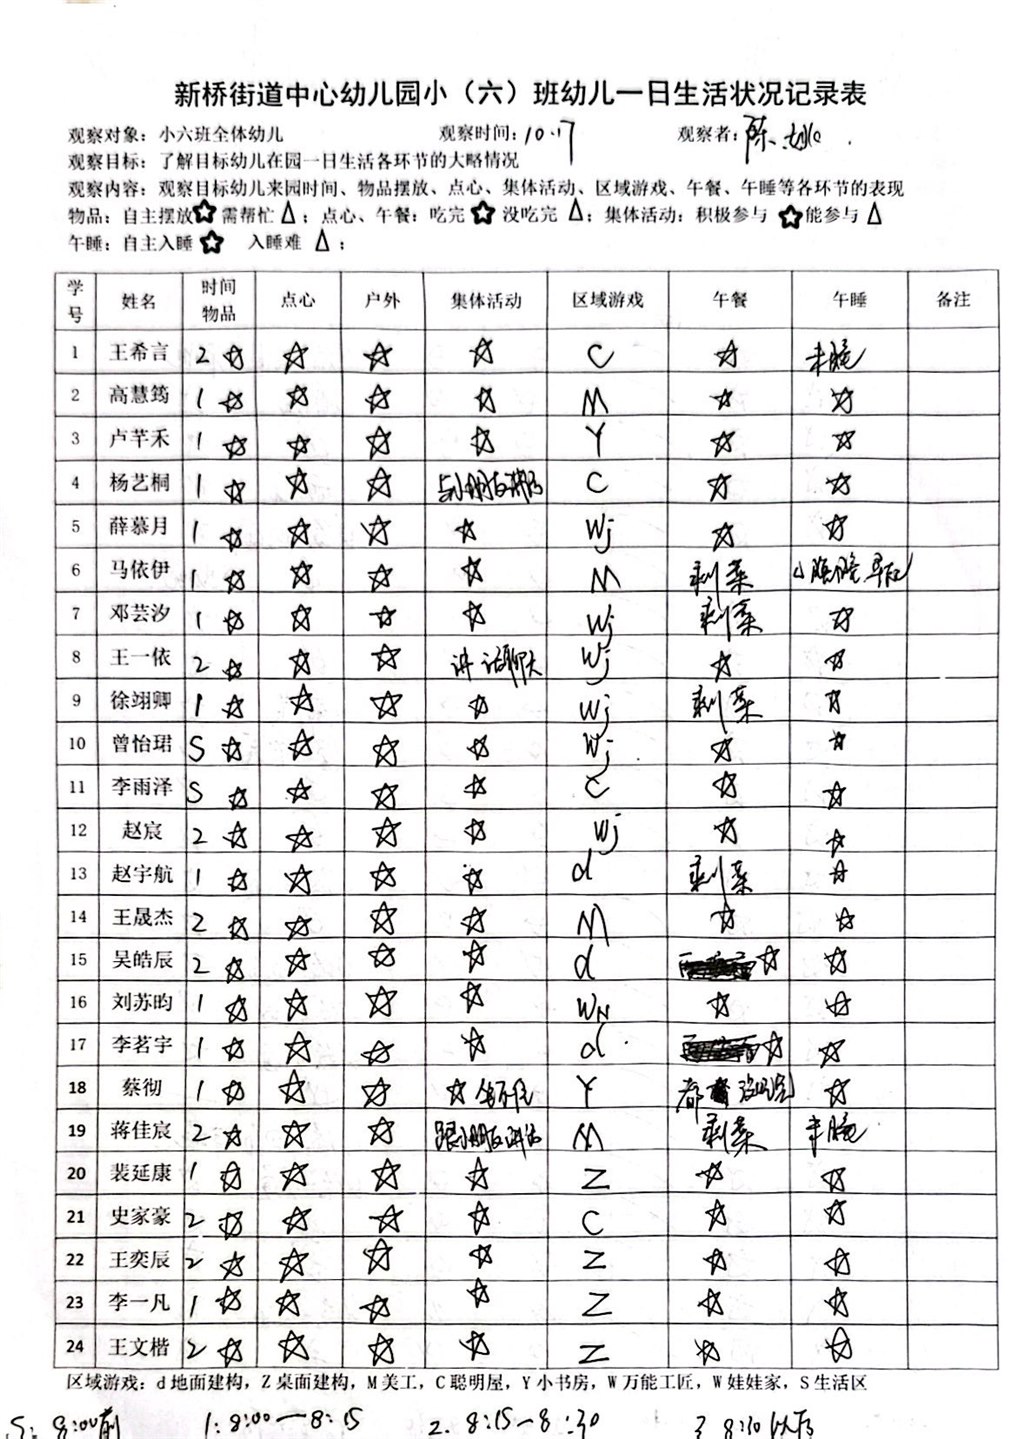 新桥街道中心幼儿园小（六）班幼儿一日生活状况记录表
观察对象：小六班全体幼儿 观察时间：10.17 观察者：陈
观察目标：了解目标幼儿在园一日生活各环节的大略情况
观察内容：观察目标幼儿来园时间、物品摆放、点心、集体活动、区域游戏、午餐、午睡等各环节的表现
物品：自主摆放☆需帮忙△；点心、午餐：吃完☆没吃完△；集体活动：积极参与☆能参与△
午睡：自主入睡☆ 入睡难△；
学号 姓名 时间物品 点心 户外 集体活动 区域游戏 午餐 午睡 备注
1 王希言 2☆ ☆ ☆ ☆ C ☆ 未睡
2 高慧筠 1☆ ☆ ☆ ☆ M ☆ ☆
3 卢芊禾 1☆ ☆ ☆ ☆ Y ☆ ☆
4 杨艺桐 1☆ ☆ ☆ 与小朋友讲话 C ☆ ☆
5 薛慕月 1☆ ☆ ☆ ☆ Wj ☆ ☆
6 马依伊 1☆ ☆ ☆ ☆ M 剩菜
7 邓芸汐 1☆ ☆ ☆ ☆ Wj 剩菜 ☆
8 王一依 2☆ ☆ ☆ 讲话聊天 Wj ☆ ☆
9 徐翊卿 1☆ ☆ ☆ ☆ Wj 剩菜 ☆
10 曾怡珺 S☆ ☆ ☆ ☆ Wj ☆ ☆
11 李雨泽 S☆ ☆ ☆ ☆ C ☆ ☆
12 赵宸 2☆ ☆ ☆ ☆ Wj ☆ ☆
13 赵宇航 1☆ ☆ ☆ ☆ d 剩菜 ☆
14 王晟杰 2☆ ☆ ☆ ☆ M ☆ ☆
15 吴皓辰 2☆ ☆ ☆ ☆ d ☆ ☆
16 刘苏昀 1☆ ☆ ☆ ☆ WN ☆ ☆
17 李茗宇 1☆ ☆ ☆ ☆ d ☆ ☆
18 蔡彻 1☆ ☆ ☆ ☆坐不住 Y 都没吃完 ☆
19 蒋佳宸 2☆ ☆ ☆ 跟小朋友讲话 M 剩菜 未睡
20 裴延康 1☆ ☆ ☆ ☆ Z ☆ ☆
21 史家豪 2☆ ☆ ☆ ☆ C ☆ ☆
22 王奕辰 2☆ ☆ ☆ ☆ Z ☆ ☆
23 李一凡 1☆ ☆ ☆ ☆ Z ☆ ☆
24 王文楷 2☆ ☆ ☆ ☆ Z ☆ ☆
区域游戏：d地面建构，Z桌面建构，M美工，C聪明屋，Y小书房，W万能工匠，W娃娃家，S生活区
S：8:00前 1：8:00—8:15 2. 8:15—8:30 3 8:30以后